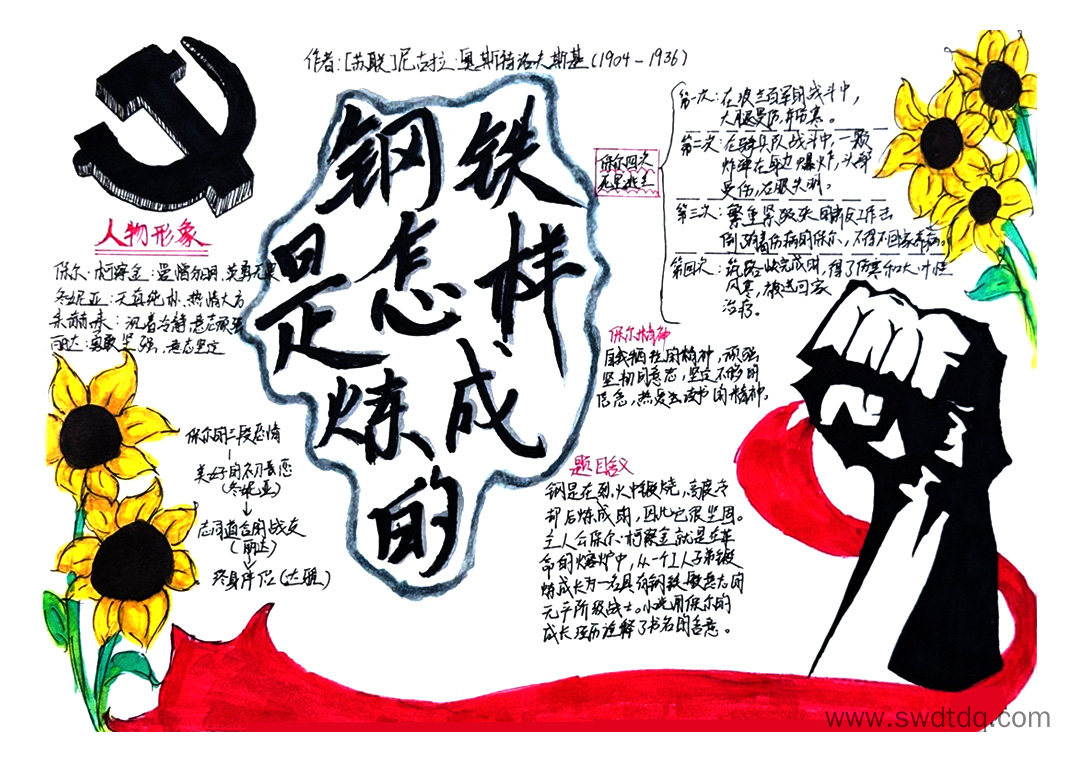 作者:[苏联]尼古拉·奥斯特洛夫斯基(1904-1936)
钢铁
是怎样
炼成
的
人物形象
保尔·柯察金:爱憎分明,英勇无畏
冬妮亚:天真纯朴、热情大方
朱赫来:沉着冷静、意志顽强
丽达:勇敢坚强、意志坚定
保尔的三段恋情
美好的初恋
(冬妮亚)
志同道合的战友
(丽达)
终身伴侣(达雅)
保尔四次
死里逃生
第一次:在波兰白军的战斗中,
大腿受伤,
第二次:在骑兵队战斗中,一颗
炸弹在身边爆炸,头部
受伤,右眼失明。
第三次:
不得不回家养病。
第四次:筑路快完成时,得了伤寒和大叶性
风寒,被送回家
治疗。
保尔精神
自我牺牲的精神,顽强
坚韧的意志,坚定不移的
信念,热爱读书的精神。
题目含义
钢是在烈火中煅烧,高度冷
却后炼成的,因此它很坚固。
主人公保尔·柯察金就是在革
命的熔炉中,从一个工人子弟锻
炼成长为一名具有钢铁般意志的
无产阶级战士。小说用保尔的
成长经历诠释了书名的含意。
www.swdtdq.com